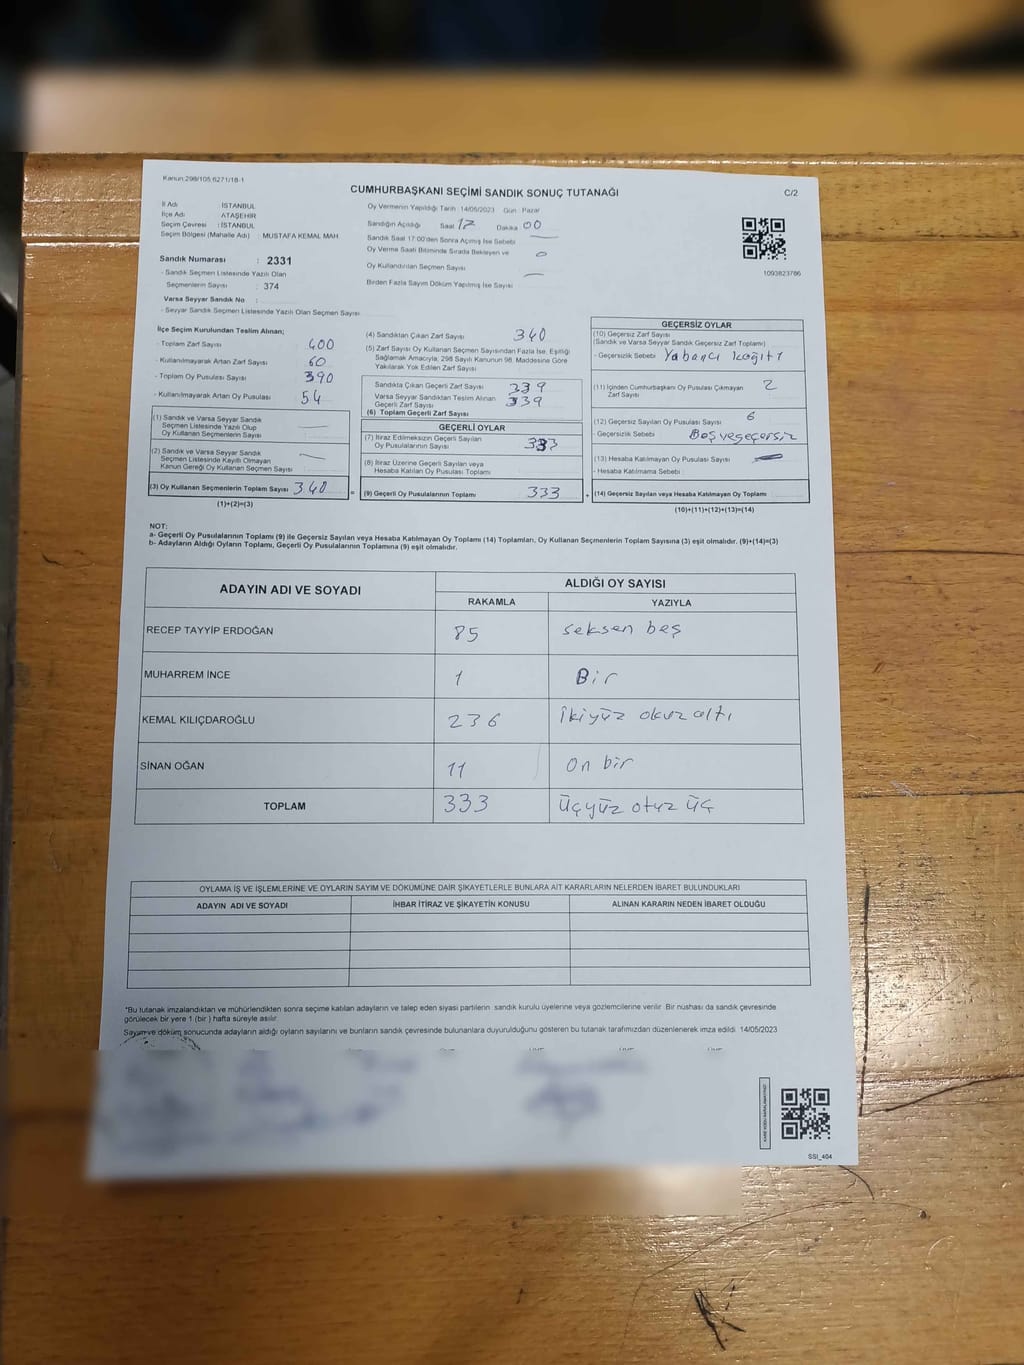 Kanun:298/105 6271/18-1
CUMHURBAŞKANI SEÇİMİ SANDIK SONUÇ TUTANAĞI
C/2
İl Adı : İSTANBUL
İlçe Adı : ATAŞEHİR
Seçim Çevresi : İSTANBUL
Seçim Bölgesi (Mahalle Adı) : MUSTAFA KEMAL MAH
Sandık Numarası : 2331
- Sandık Seçmen Listesinde Yazılı Olan
Seçmenlerin Sayısı : 374
Varsa Seyyar Sandık No :
- Seyyar Sandık Seçmen Listesinde Yazılı Olan Seçmen Sayısı
Oy Vermenin Yapıldığı Tarih : 14/05/2023 Gün : Pazar
Sandığın Açıldığı Saat 17 Dakika 00
Sandık Saat 17:00'den Sonra Açılmış İse Sebebi
Oy Verme Saati Bitiminde Sırada Bekleyen ve 0
Oy Kullandırılan Seçmen Sayısı
Birden Fazla Sayım Döküm Yapılmış İse Sayısı
1093823786
İlçe Seçim Kurulundan Teslim Alınan;
- Toplam Zarf Sayısı 400
- Kullanılmayarak Artan Zarf Sayısı 60
- Toplam Oy Pusulası Sayısı 390
- Kullanılmayarak Artan Oy Pusulası 54
(1) Sandık ve Varsa Seyyar Sandık
Seçmen Listesinde Yazılı Olup
Oy Kullanan Seçmenlerin Sayısı
(2) Sandık ve Varsa Seyyar Sandık
Seçmen Listesinde Kayıtlı Olmayan
Kanun Gereği Oy Kullanan Seçmen Sayısı
(3) Oy Kullanan Seçmenlerin Toplam Sayısı 340
(1)+(2)=(3)
(4) Sandıktan Çıkan Zarf Sayısı 340
(5) Zarf Sayısı Oy Kullanan Seçmen Sayısından Fazla İse, Eşitliği
Sağlamak Amacıyla, 298 Sayılı Kanunun 98. Maddesine Göre
Yakılarak Yok Edilen Zarf Sayısı
Sandıkta Çıkan Geçerli Zarf Sayısı 339
Varsa Seyyar Sandıktan Teslim Alınan
Geçerli Zarf Sayısı 339
(6) Toplam Geçerli Zarf Sayısı
GEÇERLİ OYLAR
(7) İtiraz Edilmeksizin Geçerli Sayılan
Oy Pusulalarının Sayısı 333
(8) İtiraz Üzerine Geçerli Sayılan veya
Hesaba Katılan Oy Pusulası Toplamı
= (9) Geçerli Oy Pusulalarının Toplamı 333 +
GEÇERSİZ OYLAR
(10) Geçersiz Zarf Sayısı
(Sandık ve Varsa Seyyar Sandık Geçersiz Zarf Toplamı)
- Geçersizlik Sebebi Yabancı kağıtı
(11) İçinden Cumhurbaşkanı Oy Pusulası Çıkmayan
Zarf Sayısı 2
(12) Geçersiz Sayılan Oy Pusulası Sayısı 6
- Geçersizlik Sebebi Boş ve geçersiz
(13) Hesaba Katılmayan Oy Pusulası Sayısı
- Hesaba Katılmama Sebebi
(14) Geçersiz Sayılan veya Hesaba Katılmayan Oy Toplamı
(10)+(11)+(12)+(13)=(14)
NOT:
a- Geçerli Oy Pusulalarının Toplamı (9) ile Geçersiz Sayılan veya Hesaba Katılmayan Oy Toplamı (14) Toplamları, Oy Kullanan Seçmenlerin Toplam Sayısına (3) eşit olmalıdır. (9)+(14)=(3)
b- Adayların Aldığı Oyların Toplamı, Geçerli Oy Pusulalarının Toplamına (9) eşit olmalıdır.
ADAYIN ADI VE SOYADI
ALDIĞI OY SAYISI
RAKAMLA YAZIYLA
RECEP TAYYİP ERDOĞAN 85 seksen beş
MUHARREM İNCE 1 Bir
KEMAL KILIÇDAROĞLU 236 İkiyüz okuz altı
SİNAN OĞAN 11 on bir
TOPLAM 333 Üçyüz otuz üç
OYLAMA İŞ VE İŞLEMLERİNE VE OYLARIN SAYIM VE DÖKÜMÜNE DAİR ŞİKAYETLERLE BUNLARA AİT KARARLARIN NELERDEN İBARET BULUNDUKLARI
ADAYIN ADI VE SOYADI İHBAR İTİRAZ VE ŞİKAYETİN KONUSU ALINAN KARARIN NEDEN İBARET OLDUĞU
*Bu tutanak imzalandıktan ve mühürlendikten sonra seçime katılan adayların ve talep eden siyasi partilerin sandık kurulu üyelerine veya gözlemcilerine verilir. Bir nüshası da sandık çevresinde
görülecek bir yere 1 (bir ) hafta süreyle asılır.
Sayım ve döküm sonucunda adayların aldığı oyların sayılarını ve bunların sandık çevresinde bulunanlara duyurulduğunu gösteren bu tutanak tarafımızdan düzenlenerek imza edildi. 14/05/2023
KARE KODU KARALAMAYINIZ!
SSI_404